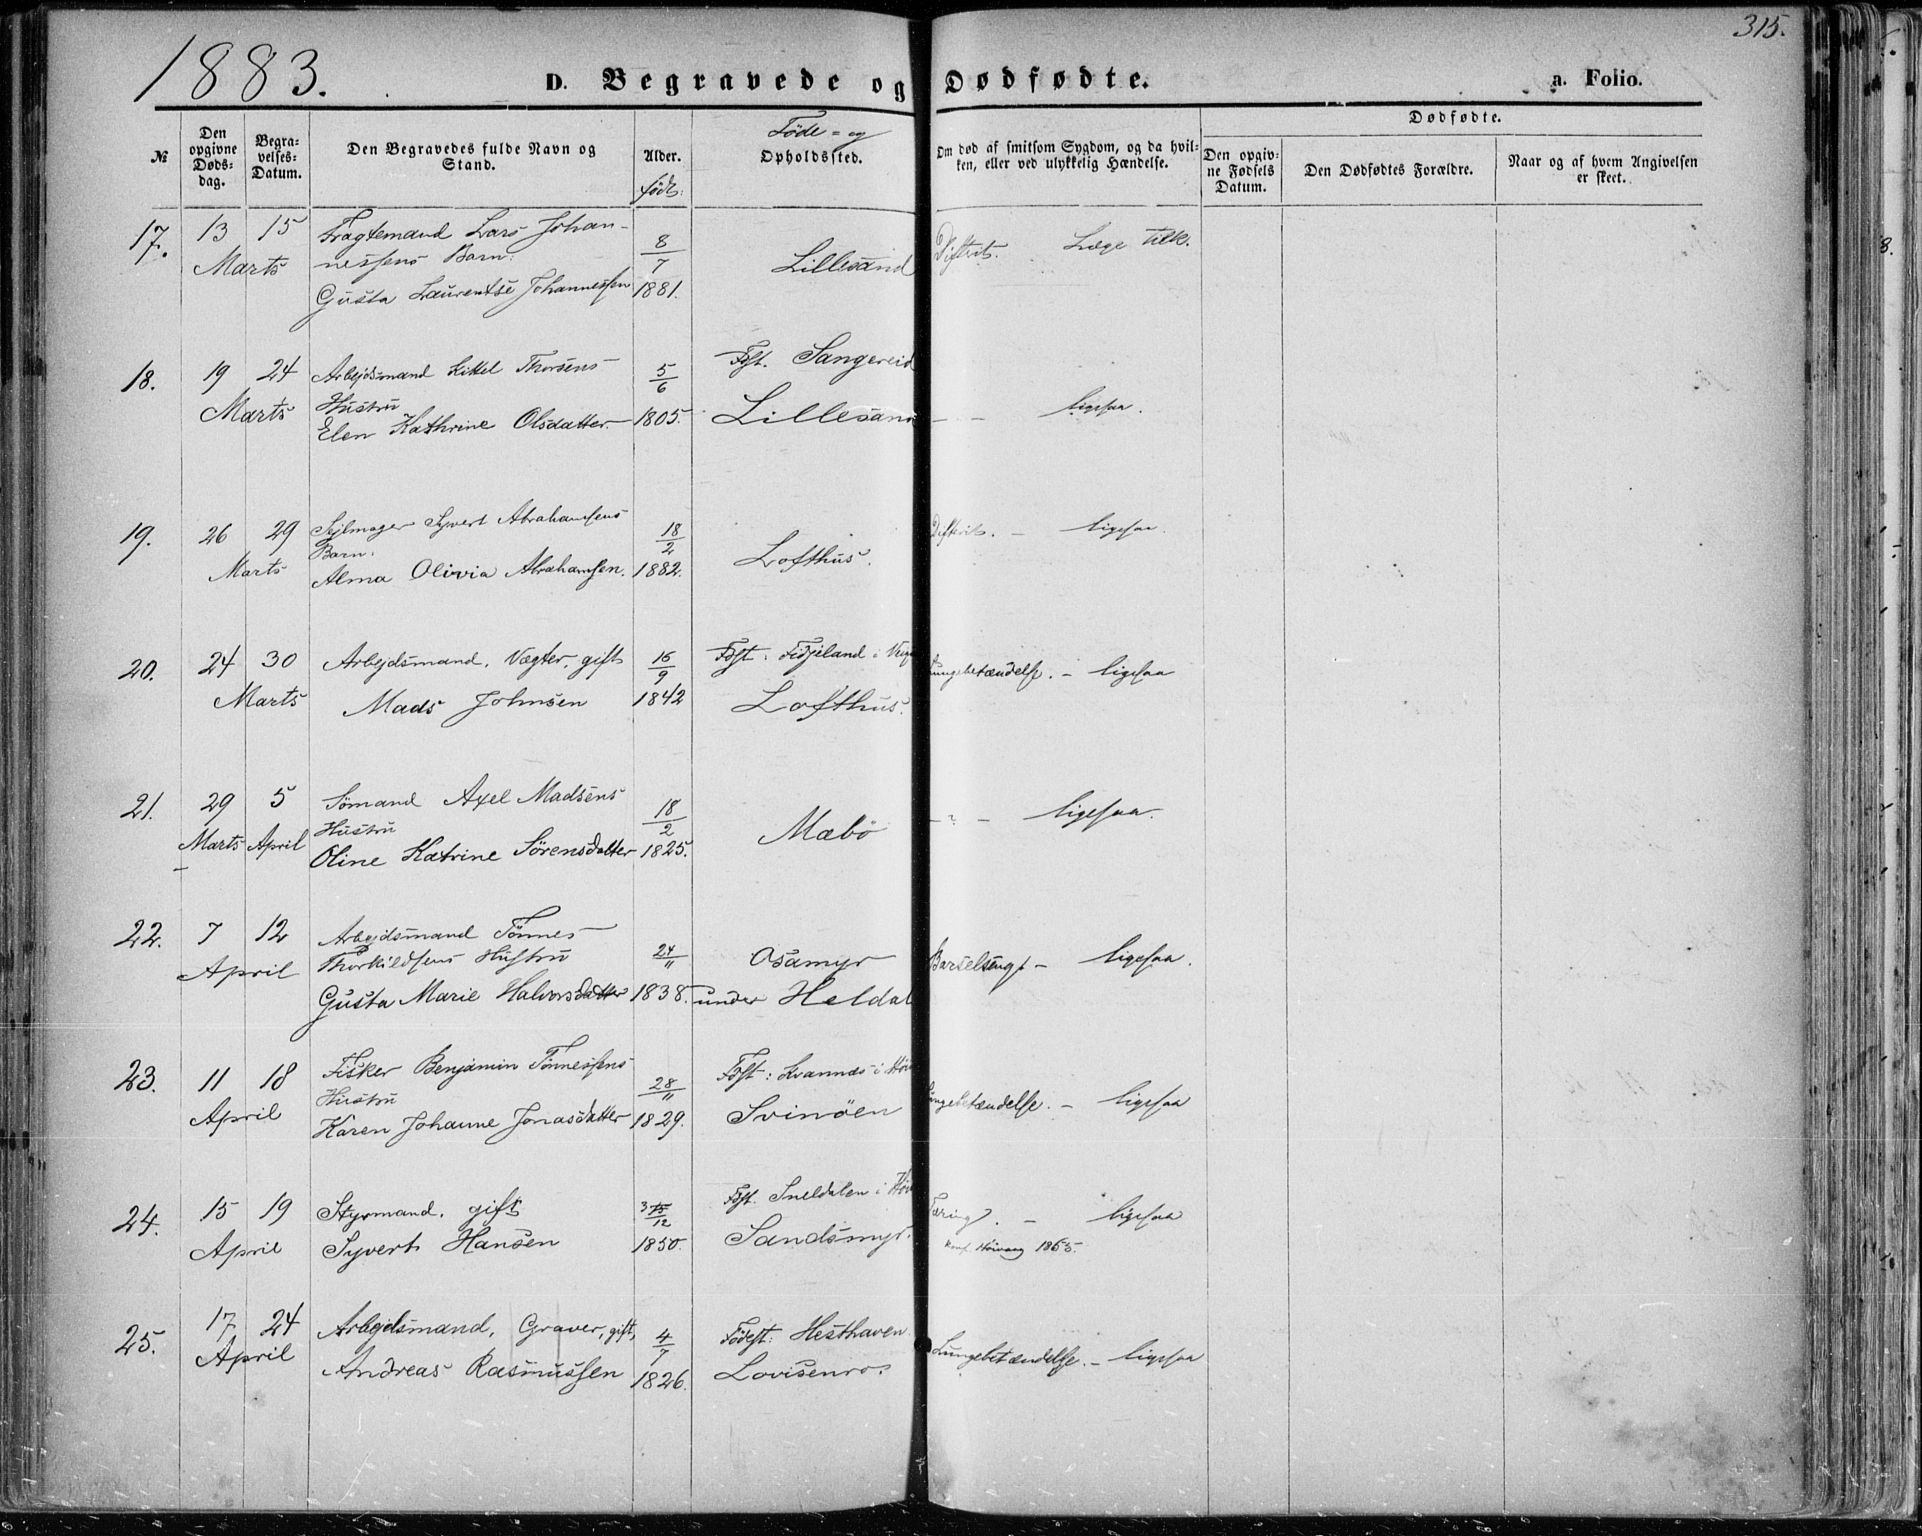 315.
1883.
D. Begravede og Dødfødte.
a. Folio.
№
Den opgivne Døds-dag.
Begra-velses-Datum.
Den Begravedes fulde Navn og Stand.
Alder.
født:
Føde- og
Opholdssted.
Om død af smitsom Sygdom, og da hvil-
ken, eller ved ulykkelig Hændelse.
Dødfødte.
Den opgiv-
ne Fødsels
Datum.
Den Dødfødtes Forældre.
Naar og af hvem Angivelsen
er skeet.
17. 13 15 Fragtemand Lars Johan- 8/7 Difterit. Læge tilk.
Marts nessens Barn: Lillesand
Gusta Laurentse Johannessen 1881.
18. 19 24 Arbejdsmand Kittel Thorsens 5/6 Fdst. Sangereid
Marts Hustru Lillesand - - ligesaa.
Elen Kathrine Olsdatter 1805.
19. 26 29 Sejlmager Syvert Abrahamsens 18/2 Difterit. - ligesaa.
Marts Barn: Lofthus.
Alma Olivia Abrahamsen. 1882.
20. 24 30 Arbejdsmand, Vægter, gift 16/9 Fdst: Fidjeland i
Lungebetændelse. - ligesaa
Marts Mads Johnsen 1842 Lofthus.
21. 29 5 Sømand Axel Madsens 18/2 Mæbø - " - ligesaa.
Marts April Hustru
Oline Katrine Sörensdatter 1825.
22. 7 12 Arbejdsmand Tönnes
April Thorkildsens Hustru 24/11 Osamyr Barselseng - ligesaa.
Gusta Marie Halvorsdatter 1838. under Heldal
23. 11 18 Fisker Benjamin Tönnessens 28/11 Fdst: Kvannes i Høiv
April Hustru Svinöen Lungebetændelse. - ligesaa
Karen Johanne Jonasdatter 1829.
24. 15 19 Styrmand. gift /12 Fdst. Sneldalen i Høiv
Tæring. - ligesaa
April Syvert Hansen 1850. Sandsmyr. Konf. Höivaag 1865.
25. 17 24 Arbejdsmand, Graver, gift, 4/7 Födest: Hesthaven.
April Andreas Rasmussen 1826. Lovisenro. Lungebetændelse. - ligesaa